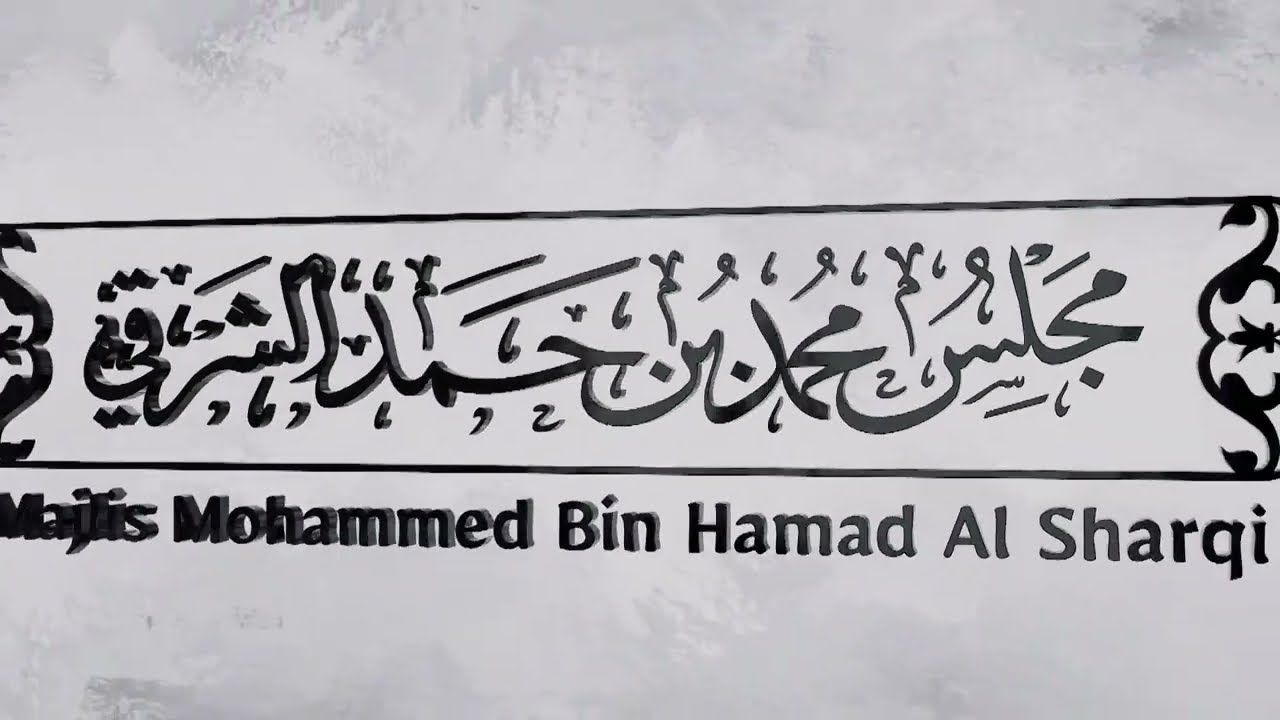 مجلس محمد بن حمد الشرقي
Majlis Mohammed Bin Hamad Al Sharqi